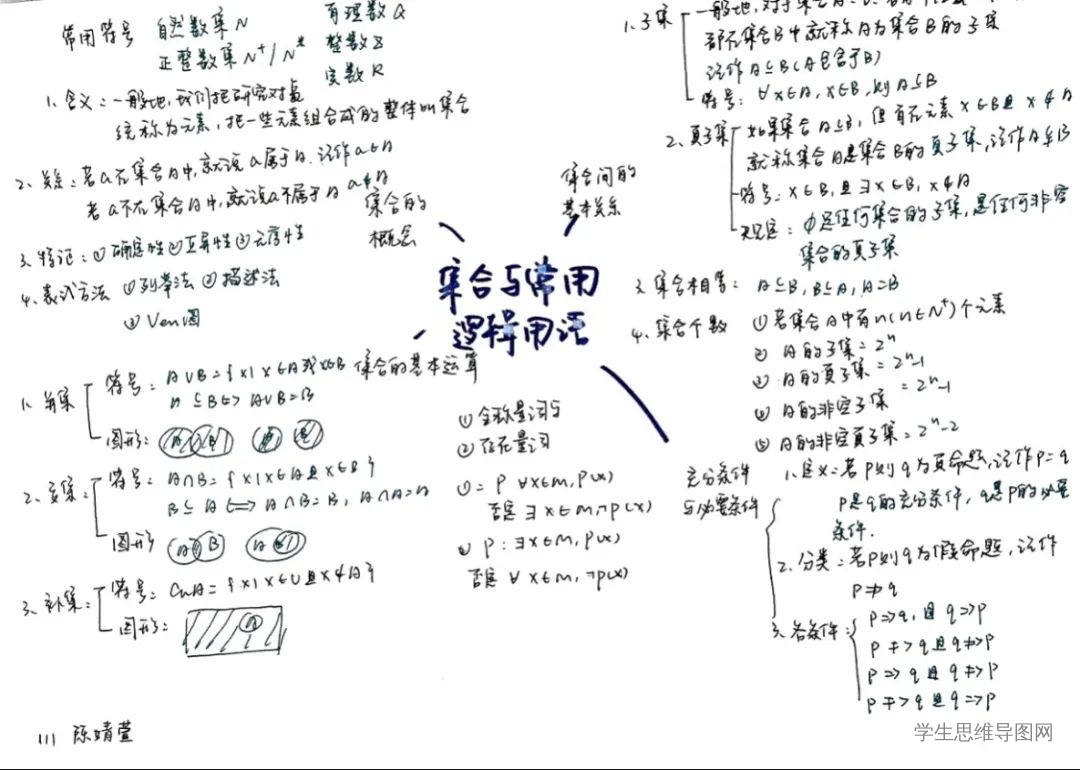 常用符号 自然数集N 有理数Q
正整数集N⁺/N* 整数Z
实数R
1、含义:一般地,我们把研究对象
统称为元素,把一些元素组合成的整体叫集合
2、关系:若a在集合A中,就说a属于A.记作a∈A
若a不在集合A中,就说a不属于A a∉A
3、特征:①确定性②互异性③无序性
4、表式方法 ①列举法 ②描述法
③Venn图
集合的
概念
集合间的
基本关系
集合与常用
逻辑用语
1、子集
一般地,对于集合A
都在集合B中就称A为集合B的子集
记作A⊆B(A包含于B)
符号:∀x∈A,x∈B,则A⊆B
2、真子集
如果集合A⊆B,但存在元素x∈B且x∉A
就称集合A是集合B的真子集,记作A⫋B
符号:x∈B,且∃x∈B,x∉A
规定:∅是任何集合的子集,是任何非空
集合的真子集
3、集合相等:A⊆B,B⊆A,A=B
4、集合个数 ①若集合A中有n(n∈N⁺)个元素
② A的子集=2ⁿ
③ A的真子集=2ⁿ-1
④ A的非空子集=2ⁿ-1
⑤ A的非空真子集=2ⁿ-2
集合的基本运算
1、并集
符号:A∪B={x|x∈A或x∈B
A⊆B⇔A∪B=B
图形:A B
2、交集:
符号:A∩B={x|x∈A且x∈B}
B⊆A⇔A∩B=B,A∩A=A
图形 A B A
3、补集:
符号:CuA={x|x∈U且x∉A}
图形:A
①全称量词与
②存在量词
①=P ∀x∈m,P(x)
否定∃x∈m¬P(x)
② P:∃x∈m,P(x)
否定∀x∈m,¬P(x)
充分条件
与必要条件
1、定义:若P则q为真命题,记作P=q
P是q的充分条件,q是P的必要
条件.
2、分类:若P则q为假命题,记作
P⇏q
3、各条件:
P⇒q,且q⇒P
P⇏q且q⇏P
P⇒q且q⇏P
P⇏q且q⇒P
111 陈婧萱
学生思维导图网